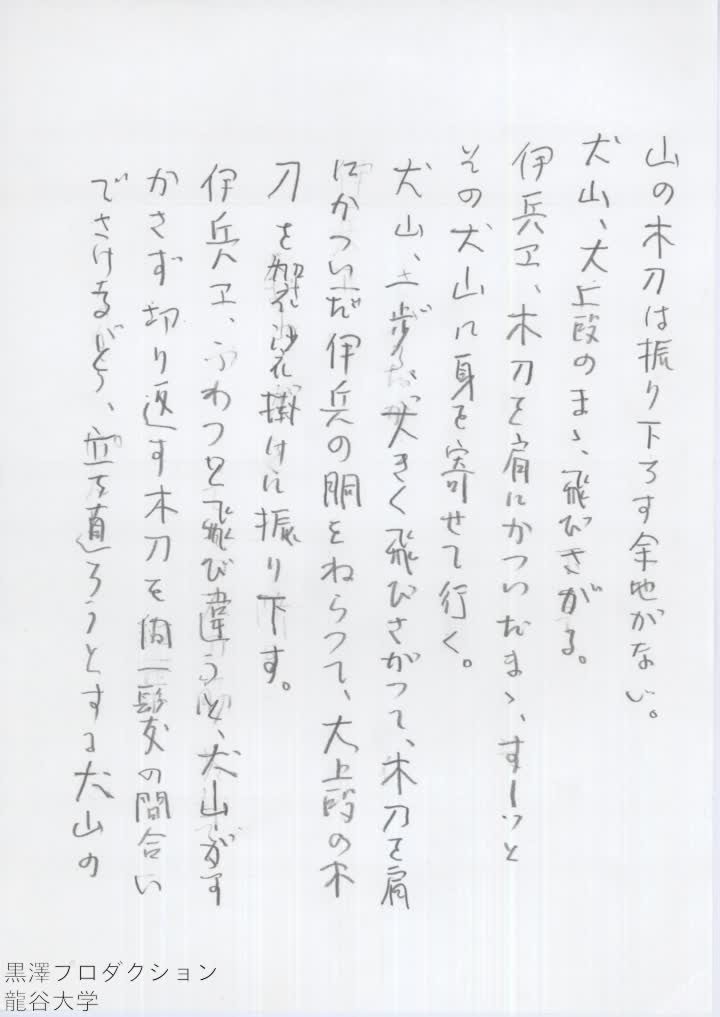 山の木刀は振り下ろす余地がない。
犬山、大上段のまゝ、飛びさがる。
伊兵ヱ、木刀を肩にかついだまゝ、すーッと
その犬山に身を寄せて行く。
犬山、一歩、大きく飛びさがって、木刀を肩
にかついだ伊兵の胴をねらって、大上段の木
刀を袈裟掛けに振り下す。
伊兵ヱ、ふわっと飛び違うと、犬山がす
かさず切り返す木刀を間一髪の間合い
でさけながら、立ち直ろうとする犬山の
黒澤プロダクション
龍谷大学